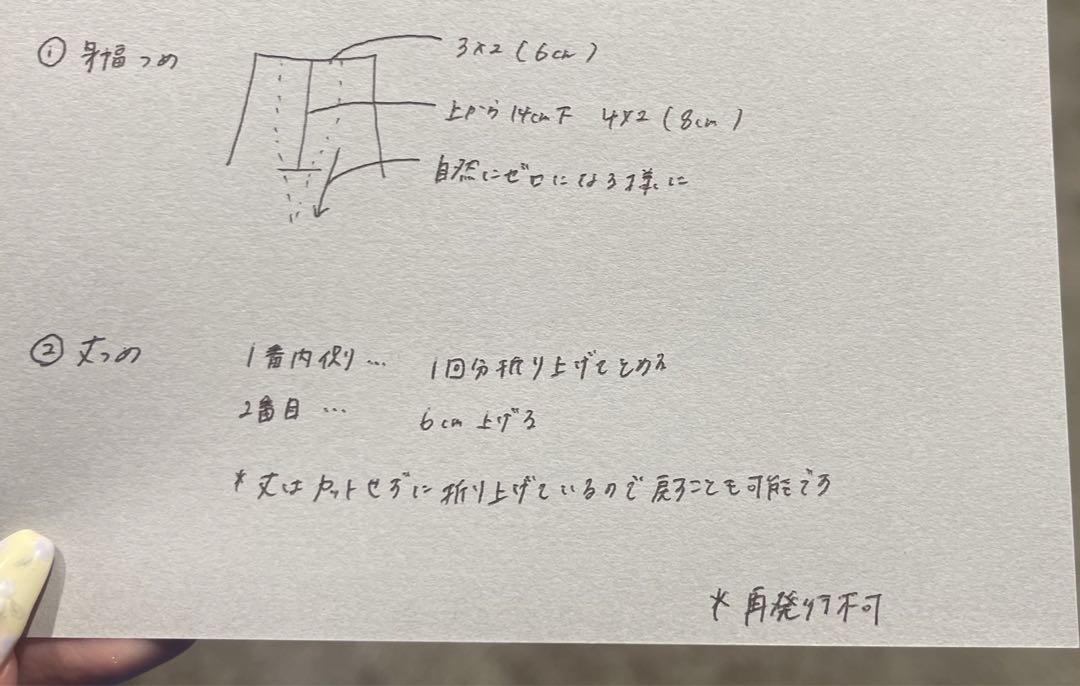 ① 身幅つめ
3×2 (6cm)
上から14cm下 4×2 (8cm)
自然にゼロになる様に
② 丈つめ
1番内側り… 1回分折り上げてとめる
2番目… 6cm上げる
* 丈はカットせずに折り上げているので戻すことも可能です
* 再発行不可